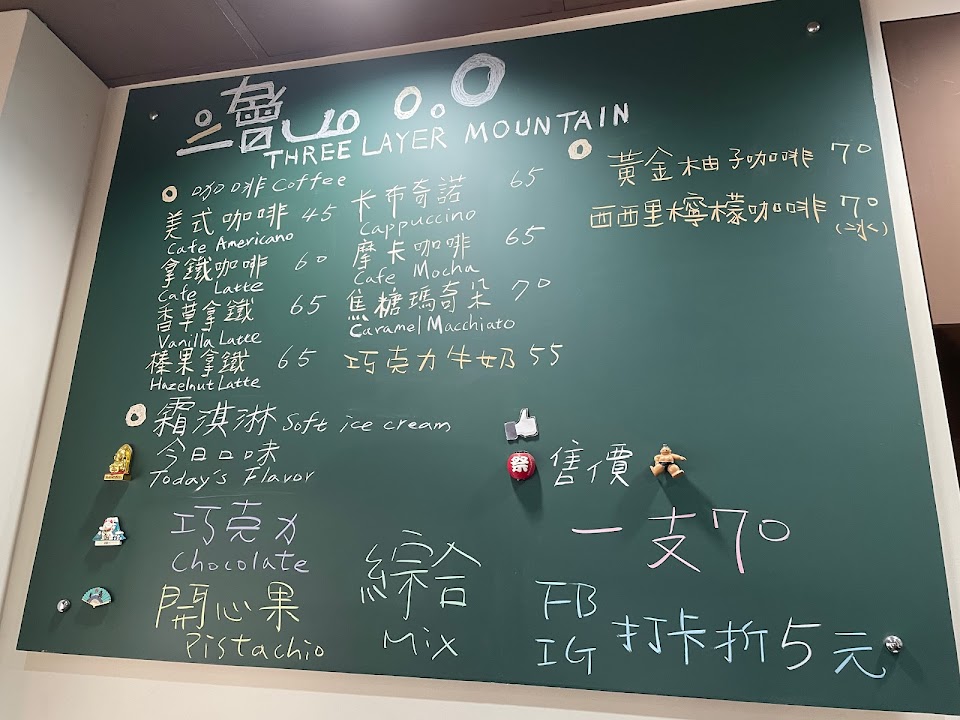 THREE LAYER MOUNTAIN
咖啡 Coffee
美式咖啡 45
Cafe Americano
拿鐵咖啡 60
Cafe Latte
香草拿鐵 65
Vanilla Latte
榛果拿鐵 65
Hazelnut Latte
卡布奇諾 65
Cappuccino
摩卡咖啡 65
Cafe Mocha
焦糖瑪奇朵 70
Caramel Macchiato
巧克力牛奶 55
黃金柚子咖啡 70
西西里檸檬咖啡 70
(冰)
霜淇淋 Soft ice cream
今日口味
Today's Flavor
巧克力
Chocolate
開心果
Pistachio
綜合
Mix
祭
售價
一支70
FB
IG 打卡折5元